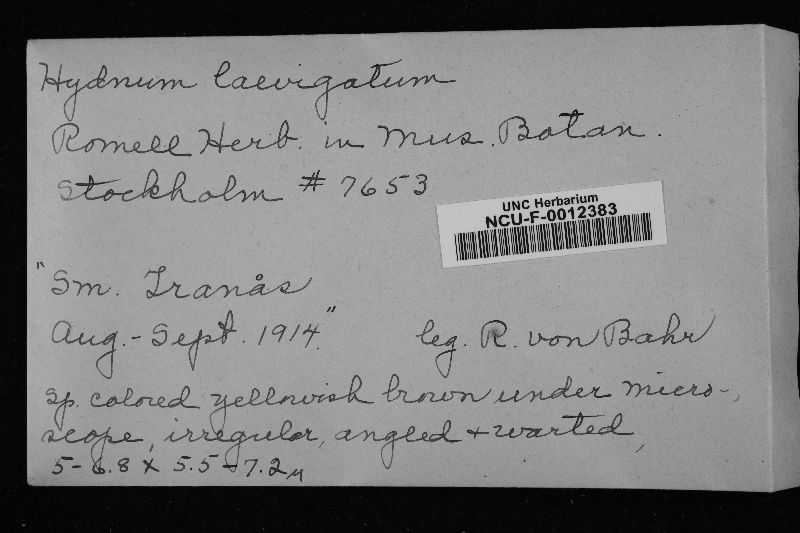 Hydnum laevigatum
Romell Herb. in Mus. Botan.
Stockholm # 7653
UNC Herbarium
NCU-F-0012383
"Sm. Tranås
Aug.-Sept. 1914." leg. R. von Bahr
Sp. colored yellowish brown under micro-
scope, irregular, angled + warted,
5-6.8 X 5.5-7.2 μ